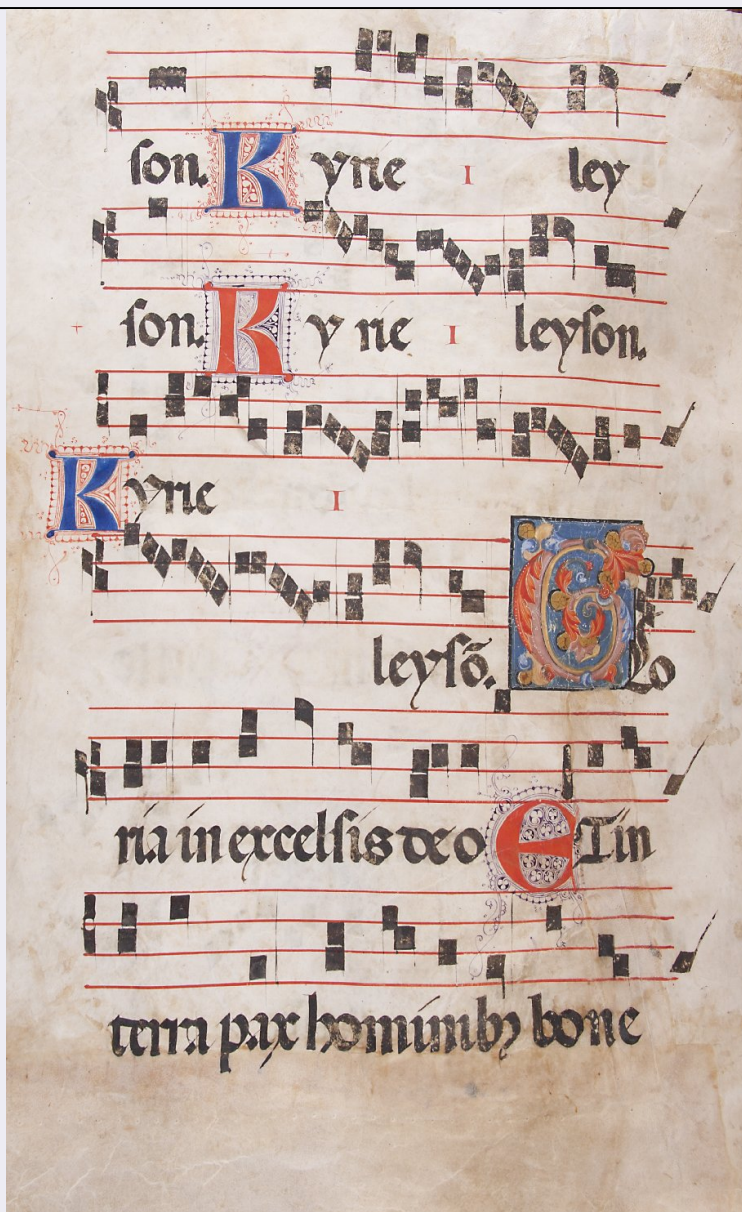 ſon. Kyrie I ley
ſon. Kyrie I leyſon.
Kyrie I
leyſō. Glo
ria in excelſis deo ETin
terra pax hominibꝫ bone